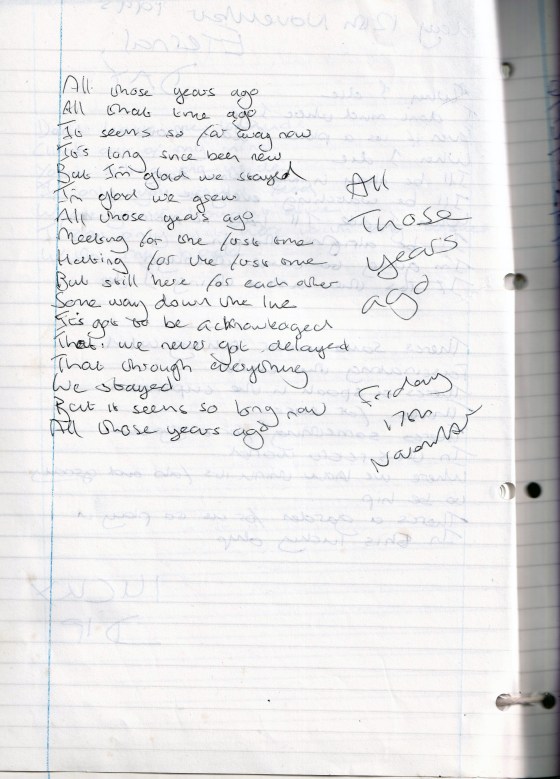 All those years ago
All that time ago
It seems so far away now
It's long since been new
But I'm glad we stayed
I'm glad we grew
All those years ago
Meeting for the first time
for the first time
But still here for each other
Some way down the line
It's got to be acknowledged
That we never got delayed
That through everything
We stayed
But it seems so long now
All those years ago
All
Those
years
ago
Friday
17th
November